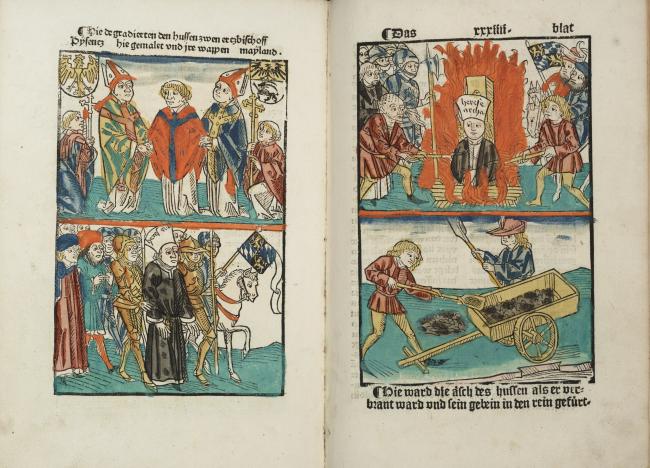 ¶Hie de gradierten den hussen zwen ertzbischoff
Pysentz hie gemalet vnd ire wappen mayland.
¶Das xxxiiii. blat
heresi
archa
¶Hie ward die äsch des hussen als er ver-
brant ward vnd sein gebein in den rein gefürt.